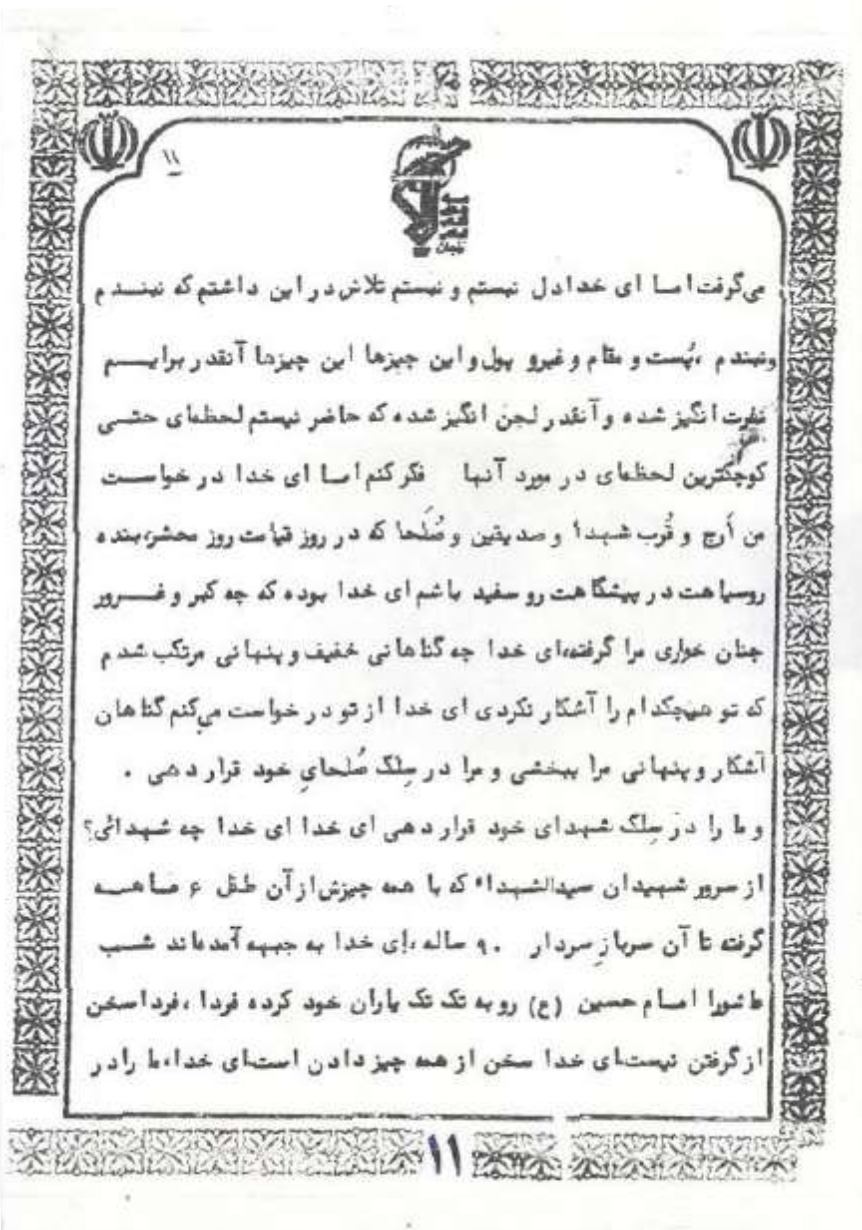 ۱۱
زنجان
می‌گرفت اما ای خدادل نبستم و نبستم تلاش در این داشتم که نبندم
ونبندم ،پُست و مقام و غیرو پول و این چیزها این چیزها آنقدر برایم
نفرت انگیز شده و آنقدر لجن انگیز شده که حاضر نیستم لحظه‌ای حتی
کوچکترین لحظه‌ای در مورد آنها فکر کنم اما ای خدا در خواست
من اَرج و قُرب شهدا و صدیقین و صُلَحا که در روز قیامت روز محشر،بنده
روسیاهت در پیشگاهت رو سفید باشم ای خدا بوده که چه کبر و غرور
چنان خواری مرا گرفته،ای خدا چه گناهانی خفیف و پنهانی مرتکب شدم
که تو هیچکدام را آشکار نکردی ای خدا از تو در خواست می‌کنم گناهان
آشکار و پنهانی مرا ببخشی و مرا در سِلک صُلحایِ خود قرار دهی .
و ما را در سِلک شهدای خود قرار دهی ای خدا ای خدا چه شهدائی؟
از سرور شهیدان سیدالشهداء که با همه چیزش از آن طفل ۶ ماهه
گرفته تا آن سربازِ سردار ۹۰ ساله ،ای خدا به جبهه آمده‌اند شب
عاشورا امام حسین (ع) رو به تک تک یاران خود کرده فردا ،فردا سخن
از گرفتن نیست‌ای خدا سخن از همه چیز دادن است‌ای خدا،ما را در
۱۱